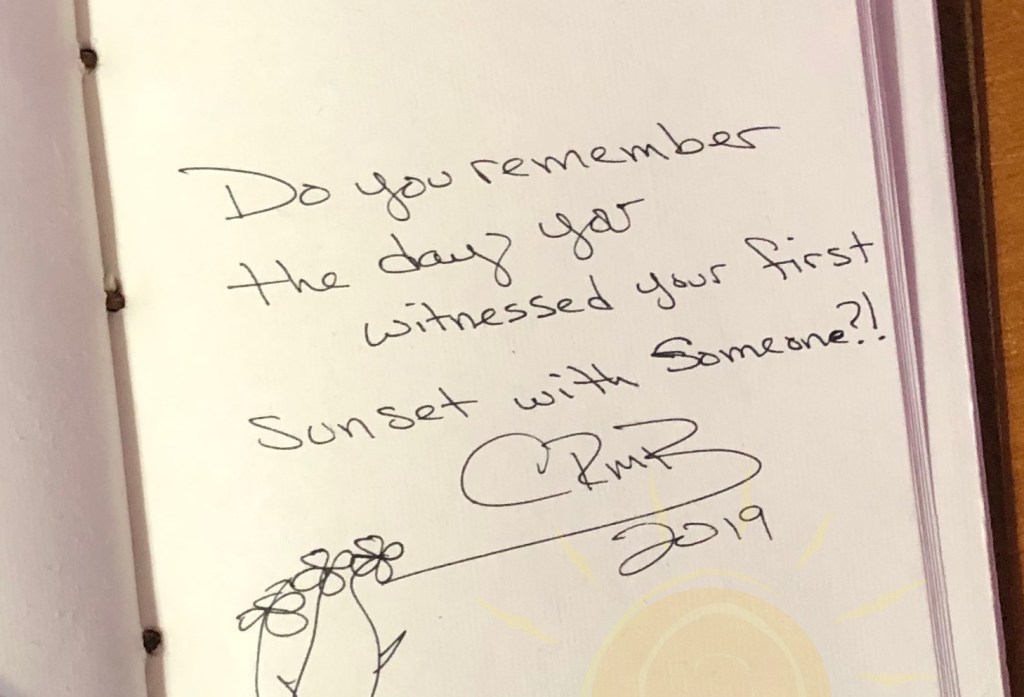 Do you remember
the day you
witnessed your first
Sunset with Someone?!
CRMB
2019